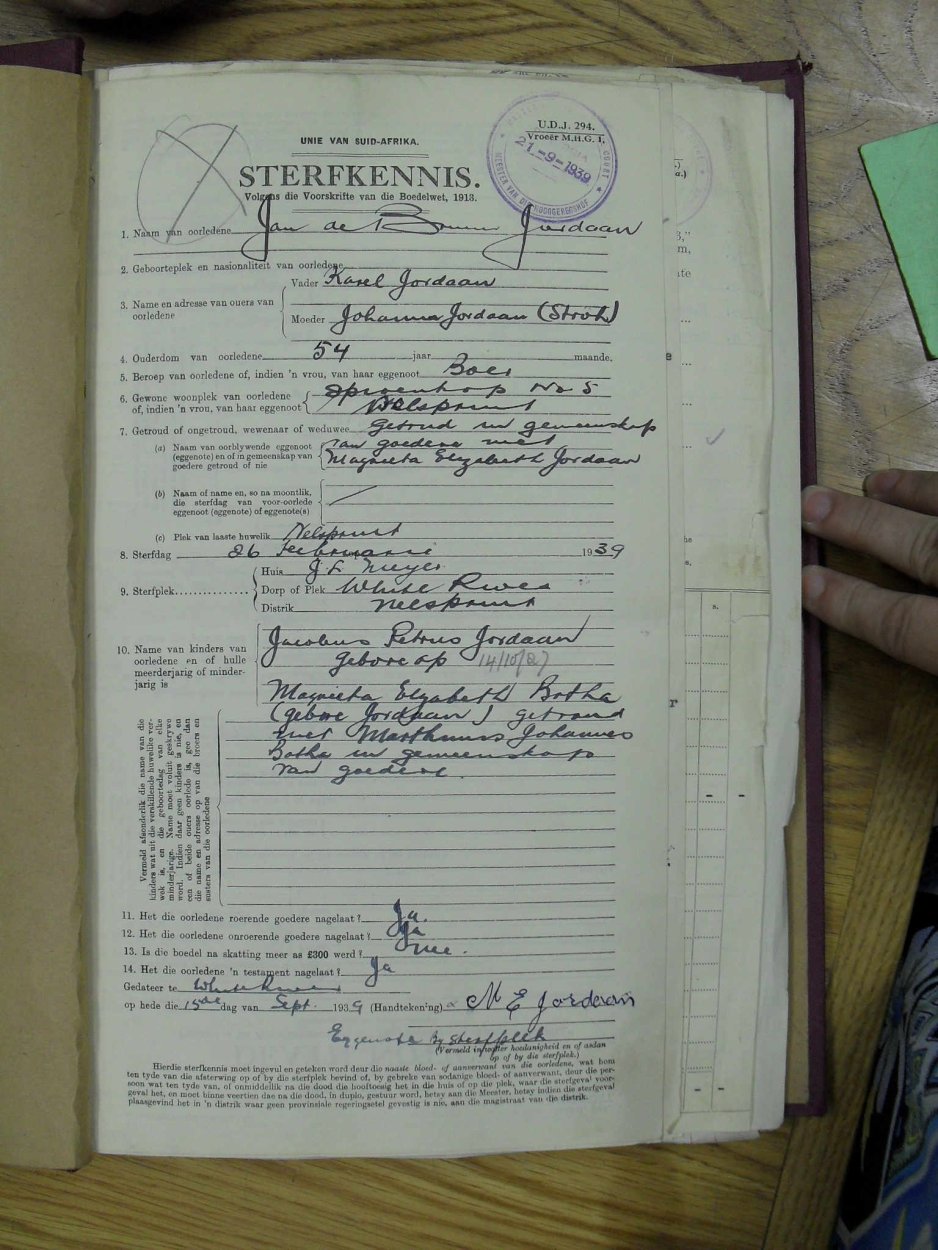 U.D.J. 294.
Vroeër M.H.G. 1.
21-9-1939
MEESTER VAN DIE HOOGGEREGSHOF
COURT
UNIE VAN SUID-AFRIKA.
STERFKENNIS.
Volgens die Voorskrifte van die Boedelwet, 1913.
1. Naam van oorledene Jan de Jordaan
2. Geboorteplek en nasionaliteit van oorledene
3. Name en adresse van ouers van oorledene
Vader Karel Jordaan
Moeder Johanna Jordaan (Stroh)
4. Ouderdom van oorledene 54 jaar maande.
5. Beroep van oorledene of, indien 'n vrou, van haar eggenoot Boer
6. Gewone woonplek van oorledene of, indien 'n vrou, van haar eggenoot
No 5
Nelspruit
7. Getroud of ongetroud, wewenaar of weduwee getroud in gemeenskap
(a) Naam van oorblywende eggenoot (eggenote) en of in gemeenskap van goedere getroud of nie
van goedere met
Magrieta Elizabeth Jordaan
(b) Naam of name en, so na moontlik, die sterfdag van voor-oorlede eggenoot (eggenote) of eggenote(s)
(c) Plek van laaste huwelik Nelspruit
8. Sterfdag 26 Februarie 1939
9. Sterfplek
Huis J.F. Meyer
Dorp of Plek White River
Distrik Nelspruit
10. Name van kinders van oorledene en of hulle meerderjarig of minderjarig is
Jacobus Petrus Jordaan
gebore op 14/10/27
Magrieta Elizabeth Botha
(gebore Jordaan) getroud
met Marthinus Johannes
Botha in gemeenskap
van goedere.
Vermeld afsonderlik die name van die kinders wat uit die verskillende huwelike verwek is, en die geboortedag van elke minderjarige. Name moet voluit geskrywe word. Indien daar geen kinders is nie, en een of beide ouers oorlede is, gee dan die name en adresse op van die broers en susters van die oorledene
11. Het die oorledene roerende goedere nagelaat? Ja.
12. Het die oorledene onroerende goedere nagelaat? Ja
13. Is die boedel na skatting meer as £300 werd? Nee.
14. Het die oorledene 'n testament nagelaat? Ja
Gedateer te White River
op hede die 15de dag van Sept. 1939 (Handtekening) M E Jordaan
Eggenote by sterfplek
(Vermeld in watter hoedanigheid en of asdan op of by die sterfplek.)
Hierdie sterfkennis moet ingevul en geteken word deur die naaste bloed- of aanverwant van die oorledene, wat hom
ten tyde van die afsterwing op of by die sterfplek bevind of, by gebreke van sodanige bloed- of aanverwant, deur die per-
soon wat ten tyde van, of onmiddelik na die dood die hooftoesig het in die huis of op die plek, waar die sterfgeval voor-
geval het, en moet binne veertien dae na die dood, in duplo, gestuur word, hetsy aan die Meester, hetsy indien die sterfgeval
plaasgevind het in 'n distrik waar geen provinsiale regeringsetel gevestig is nie, aan die magistraat van die distrik.